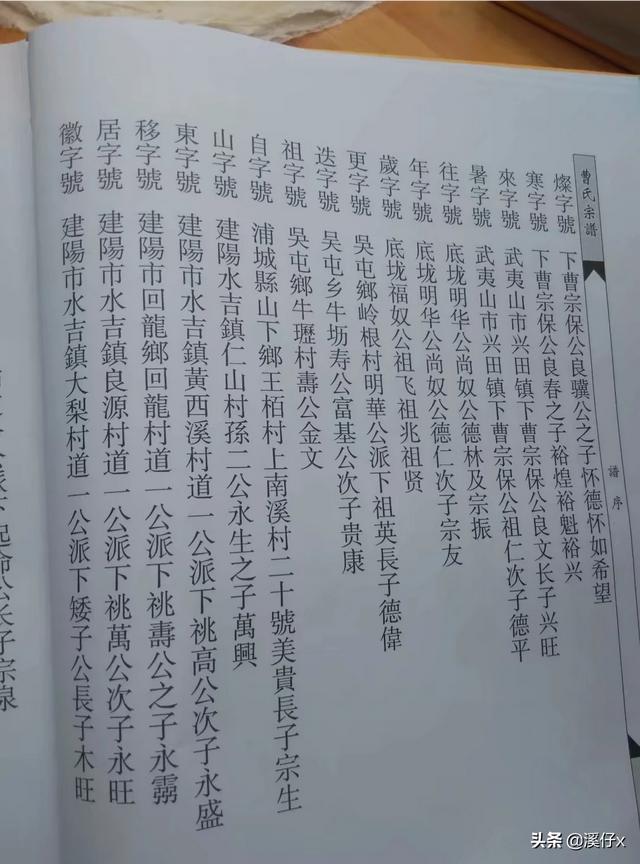 曹氏宗譜
譜序
燦字號 下曹宗保公良骥公之子怀德怀如希望
寒字號 下曹宗保公良春之子裕煌裕魁裕兴
來字號 武夷山市兴田镇下曹宗保公良文长子兴旺
暑字號 武夷山市兴田镇下曹宗保公祖仁次子德平
往字號 底垅明华公尚奴公德林及宗振
年字號 底垅明华公尚奴公德仁次子宗友
歲字號 底垅福奴公祖飞祖兆祖贤
更字號 吳屯鄉岭根村明華公派下祖英長子德偉
迭字號 吴屯乡牛坜寿公富基公次子贵康
祖字號 吳屯鄉牛壢村壽公金文
自字號 浦城縣山下鄉王栢村上南溪村二十號美貴長子宗生
山字號 建陽水吉鎮仁山村孫二公永生之子萬興
東字號 建陽市水吉鎮黃西溪村道一公派下祧高公次子永盛
移字號 建陽市回龍鄉回龍村道一公派下祧壽公之子永霛
居字號 建陽市水吉鎮良源村道一公派下祧萬公次子永旺
徽字號 建陽市水吉鎮大梨村道一公派下矮子公長子木旺
公长子宗泉
头条 @溪仔x